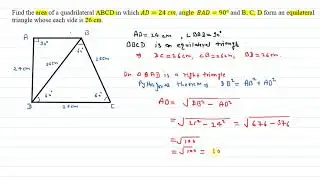 Find the area of a quadrilateral ABCD in which AD = 24 cm, angle BAD = 90° and B, C, D form an equilateral
triangle whose each side is 26 cm.
A
D
90°
24cm
26cm
26cm
60°
B
26cm
C
AD = 24 cm, ∠BAD = 90°
DBCD is an equilateral triangle
BC = 26cm, CD = 26cm, DB = 26cm.
On △BAD is a right triangle
Pythagoras theorem } DB² = AD² + AB²
AD = √DB² − AD²
= √26² − 24² = √676 − 576
= √100
= √100 = 10